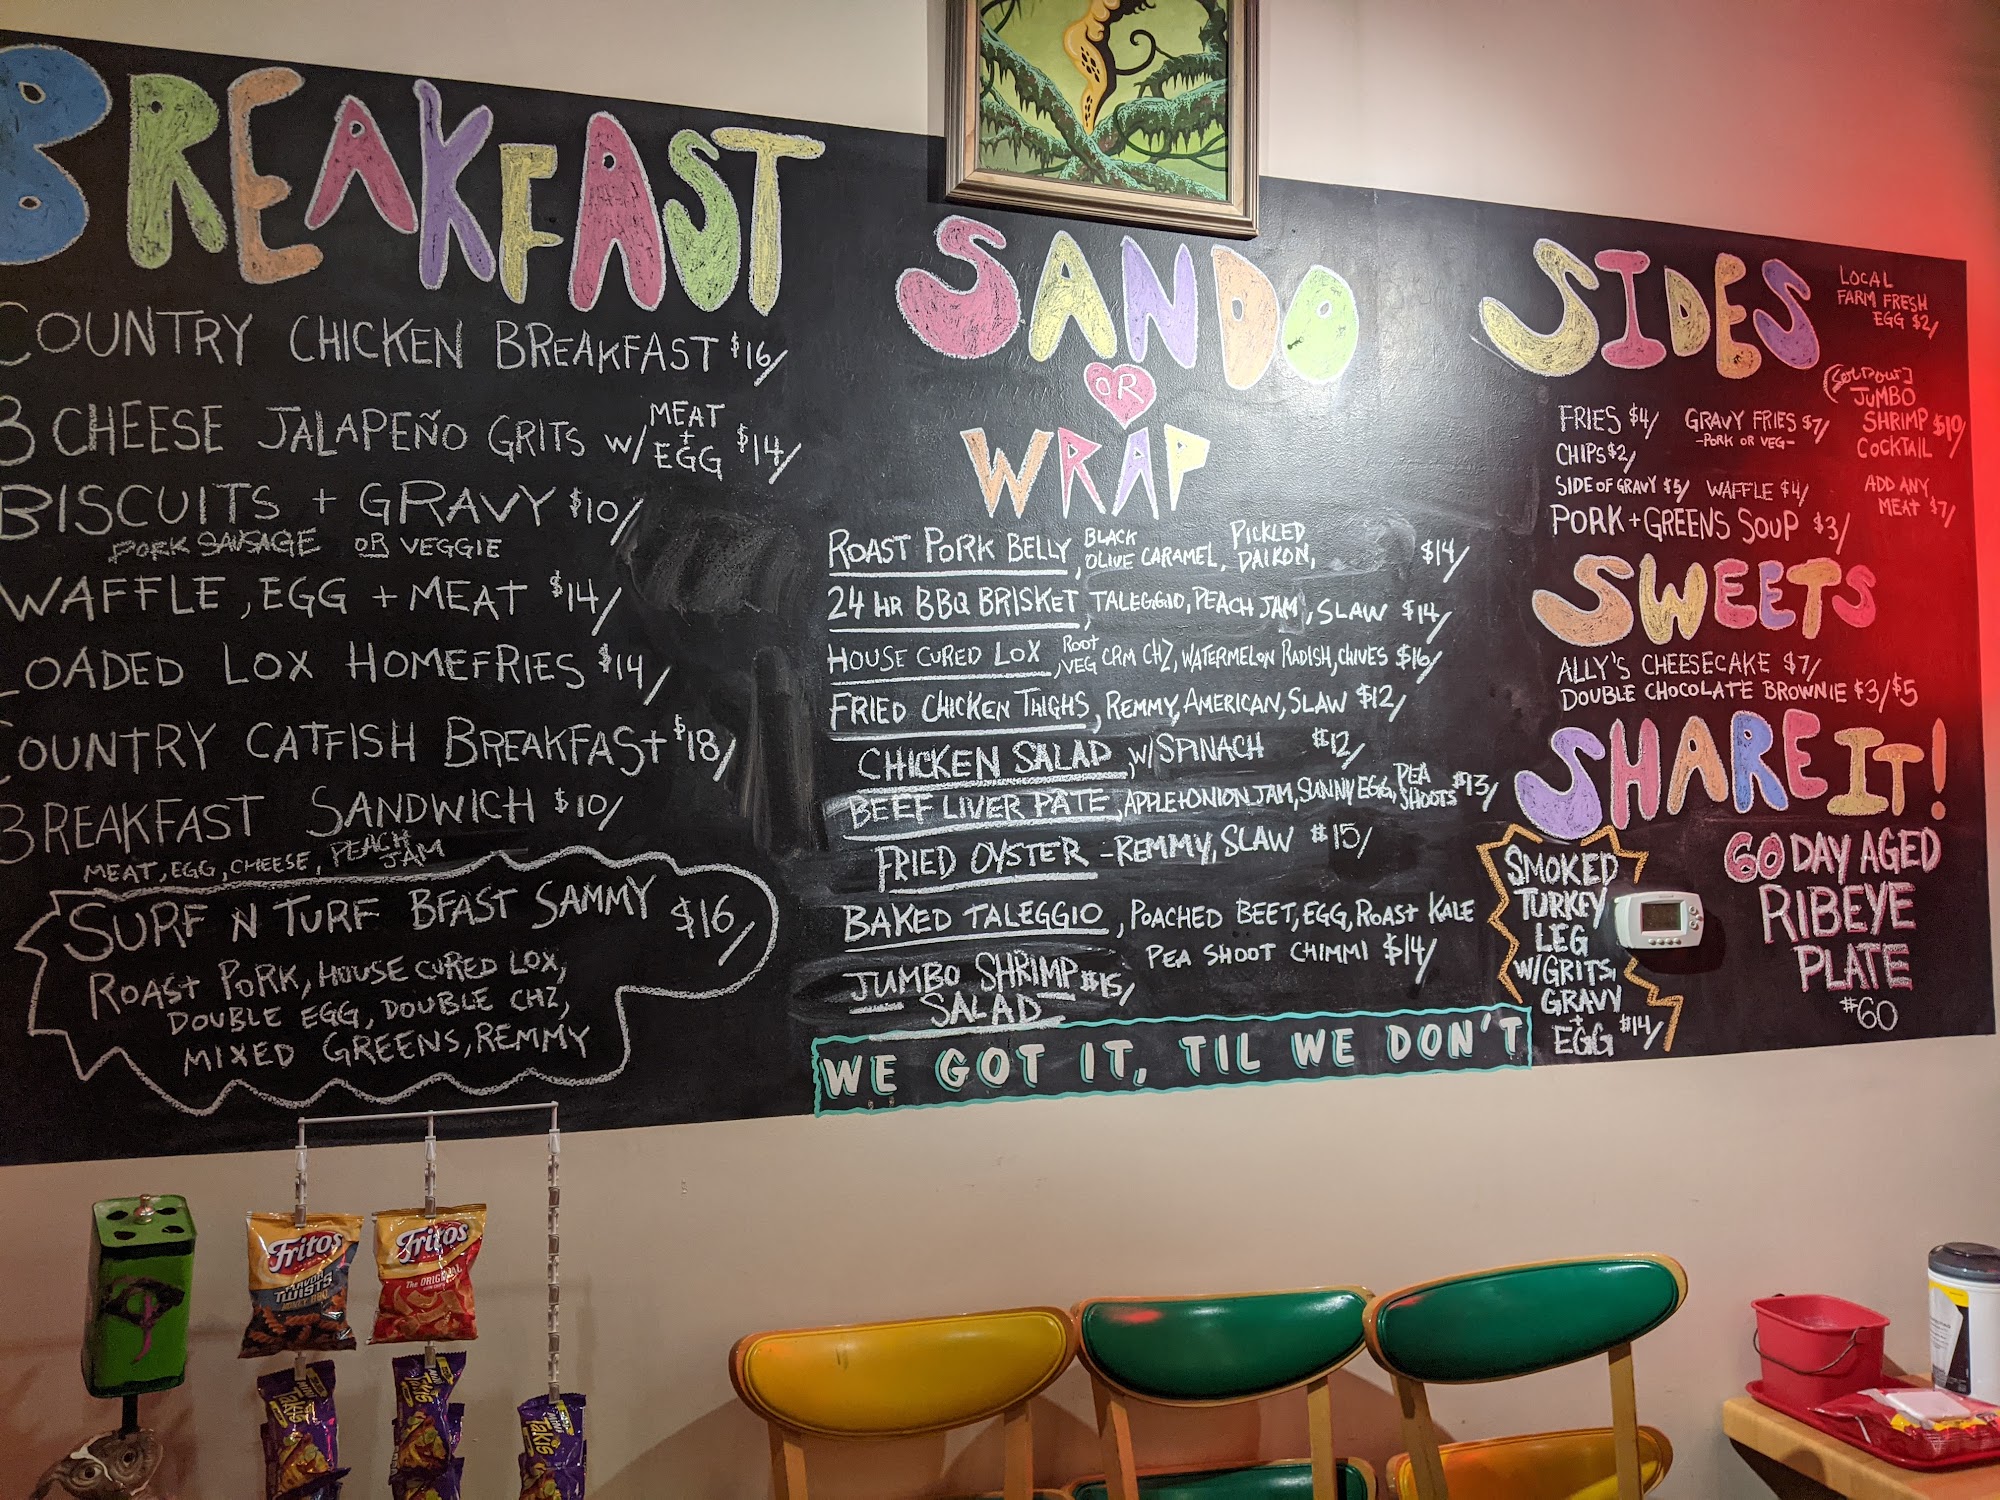 BREAKFAST
COUNTRY CHICKEN BREAKFAST $16/
3 CHEESE JALAPEÑO GRITS W/ MEAT + EGG $14/
BISCUITS + GRAVY $10/
PORK SAUSAGE OR VEGGIE
WAFFLE, EGG + MEAT $14/
LOADED LOX HOMEFRIES $14/
COUNTRY CATFISH BREAKFAST $18/
BREAKFAST SANDWICH $10/
MEAT, EGG, CHEESE, PEACH JAM
SURF N TURF BFAST SAMMY $16/
ROAST PORK, HOUSE CURED LOX,
DOUBLE EGG, DOUBLE CHZ,
MIXED GREENS, REMMY
SANDO
OR
WRAP
ROAST PORK BELLY, BLACK OLIVE CARAMEL, PICKLED DAIKON, $14/
24 HR BBQ BRISKET, TALEGGIO, PEACH JAM, SLAW $14/
HOUSE CURED LOX, ROOT VEG CRM CHZ, WATERMELON RADISH, CHIVES $16/
FRIED CHICKEN THIGHS, REMMY, AMERICAN, SLAW $12/
CHICKEN SALAD, W/ SPINACH $12/
BEEF LIVER PATE, APPLE+ONION JAM, SUNNY EGG, PEA SHOOTS $13/
FRIED OYSTER - REMMY, SLAW $15/
BAKED TALEGGIO, POACHED BEET, EGG, ROAST KALE
PEA SHOOT CHIMMI $14/
JUMBO SHRIMP $15/
SALAD
WE GOT IT, TIL WE DON'T
SIDES
LOCAL
FARM FRESH
EGG $2/
FRIES $4/ GRAVY FRIES $7/
-PORK OR VEG-
CHIPS $2/
SIDE OF GRAVY $5/ WAFFLE $4/
PORK + GREENS SOUP $3/
JUMBO
SHRIMP $10/
COCKTAIL
ADD ANY
MEAT $7/
SWEETS
ALLY'S CHEESECAKE $7/
DOUBLE CHOCOLATE BROWNIE $3/$5
SHARE IT!
SMOKED
TURKEY
LEG
W/GRITS,
GRAVY
+
EGG $14/
60 DAY AGED
RIBEYE
PLATE
$60
Fritos
FLAVOR
TWISTS
HONEY BBQ
Fritos
The ORIGINAL
Takis
Takis
Takis